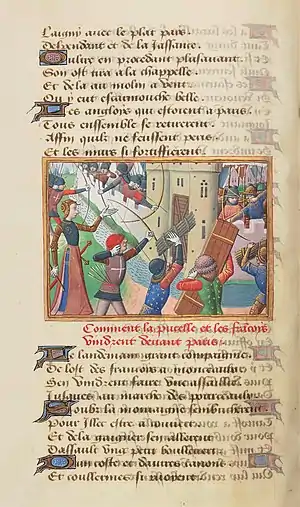 Laigny auec le plat pais
Deppendant et de la Jassaire
Oultre en procedant plusauant
Son ost tira a la chappelle
Et de la au molin a vent
Ou y eut escarmouche belle
Les angloys qui estoient a paris
Tous ensemble se
Affin quilz ne feussent peris
Et les murs si fortiffierent
Comment la pucelle et les francoys
Vindrent deuant paris
Le landemain grant compaignie
De lost des francois a monceaulx
Sen vindrent faire vne assaillie
Jusques au marche des pourceaulx
Soubz la montaigne sembucherent
Pour illec estre a couuert
Et de la gaigner sen allerent
Dassault vng petit boulleuert
Dun coste et dautres canons
Et coulleurines si